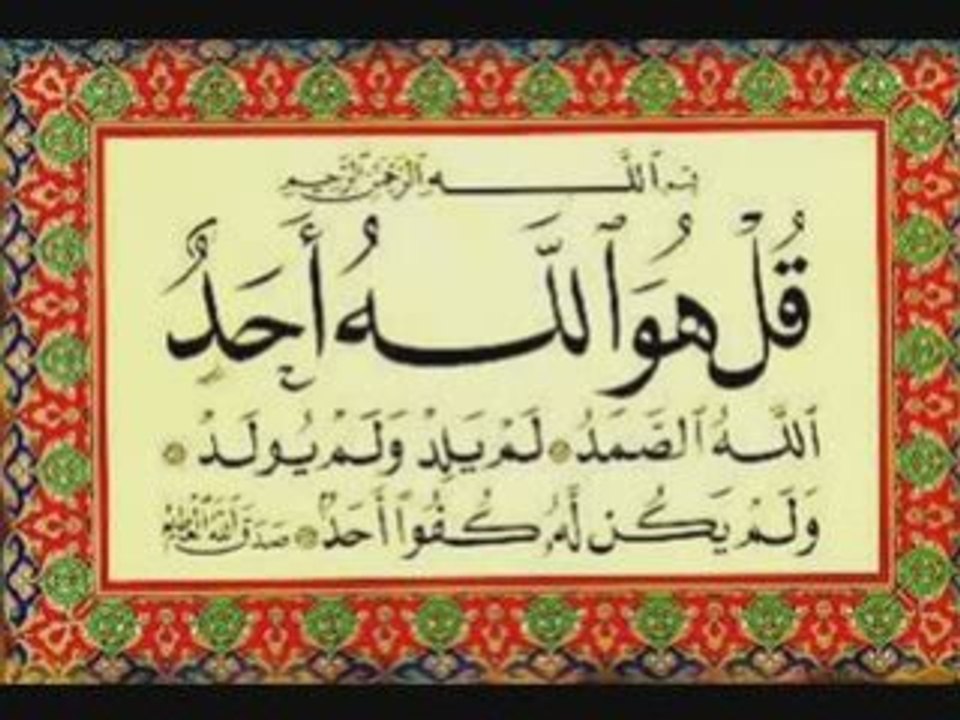 بسم ٱللَّه ٱلرَّحْمَٰنِ ٱلرَّحِيمِ
قُلْ هُوَ ٱللَّهُ أَحَدٌ
ٱللَّهُ ٱلصَّمَدُ لَمْ يَلِدْ وَلَمْ يُولَدْ
وَلَمْ يَكُن لَّهُۥ كُفُوًا أَحَدٌ صَدَقَ ٱللَّهُ ٱلْعَظِيمُ